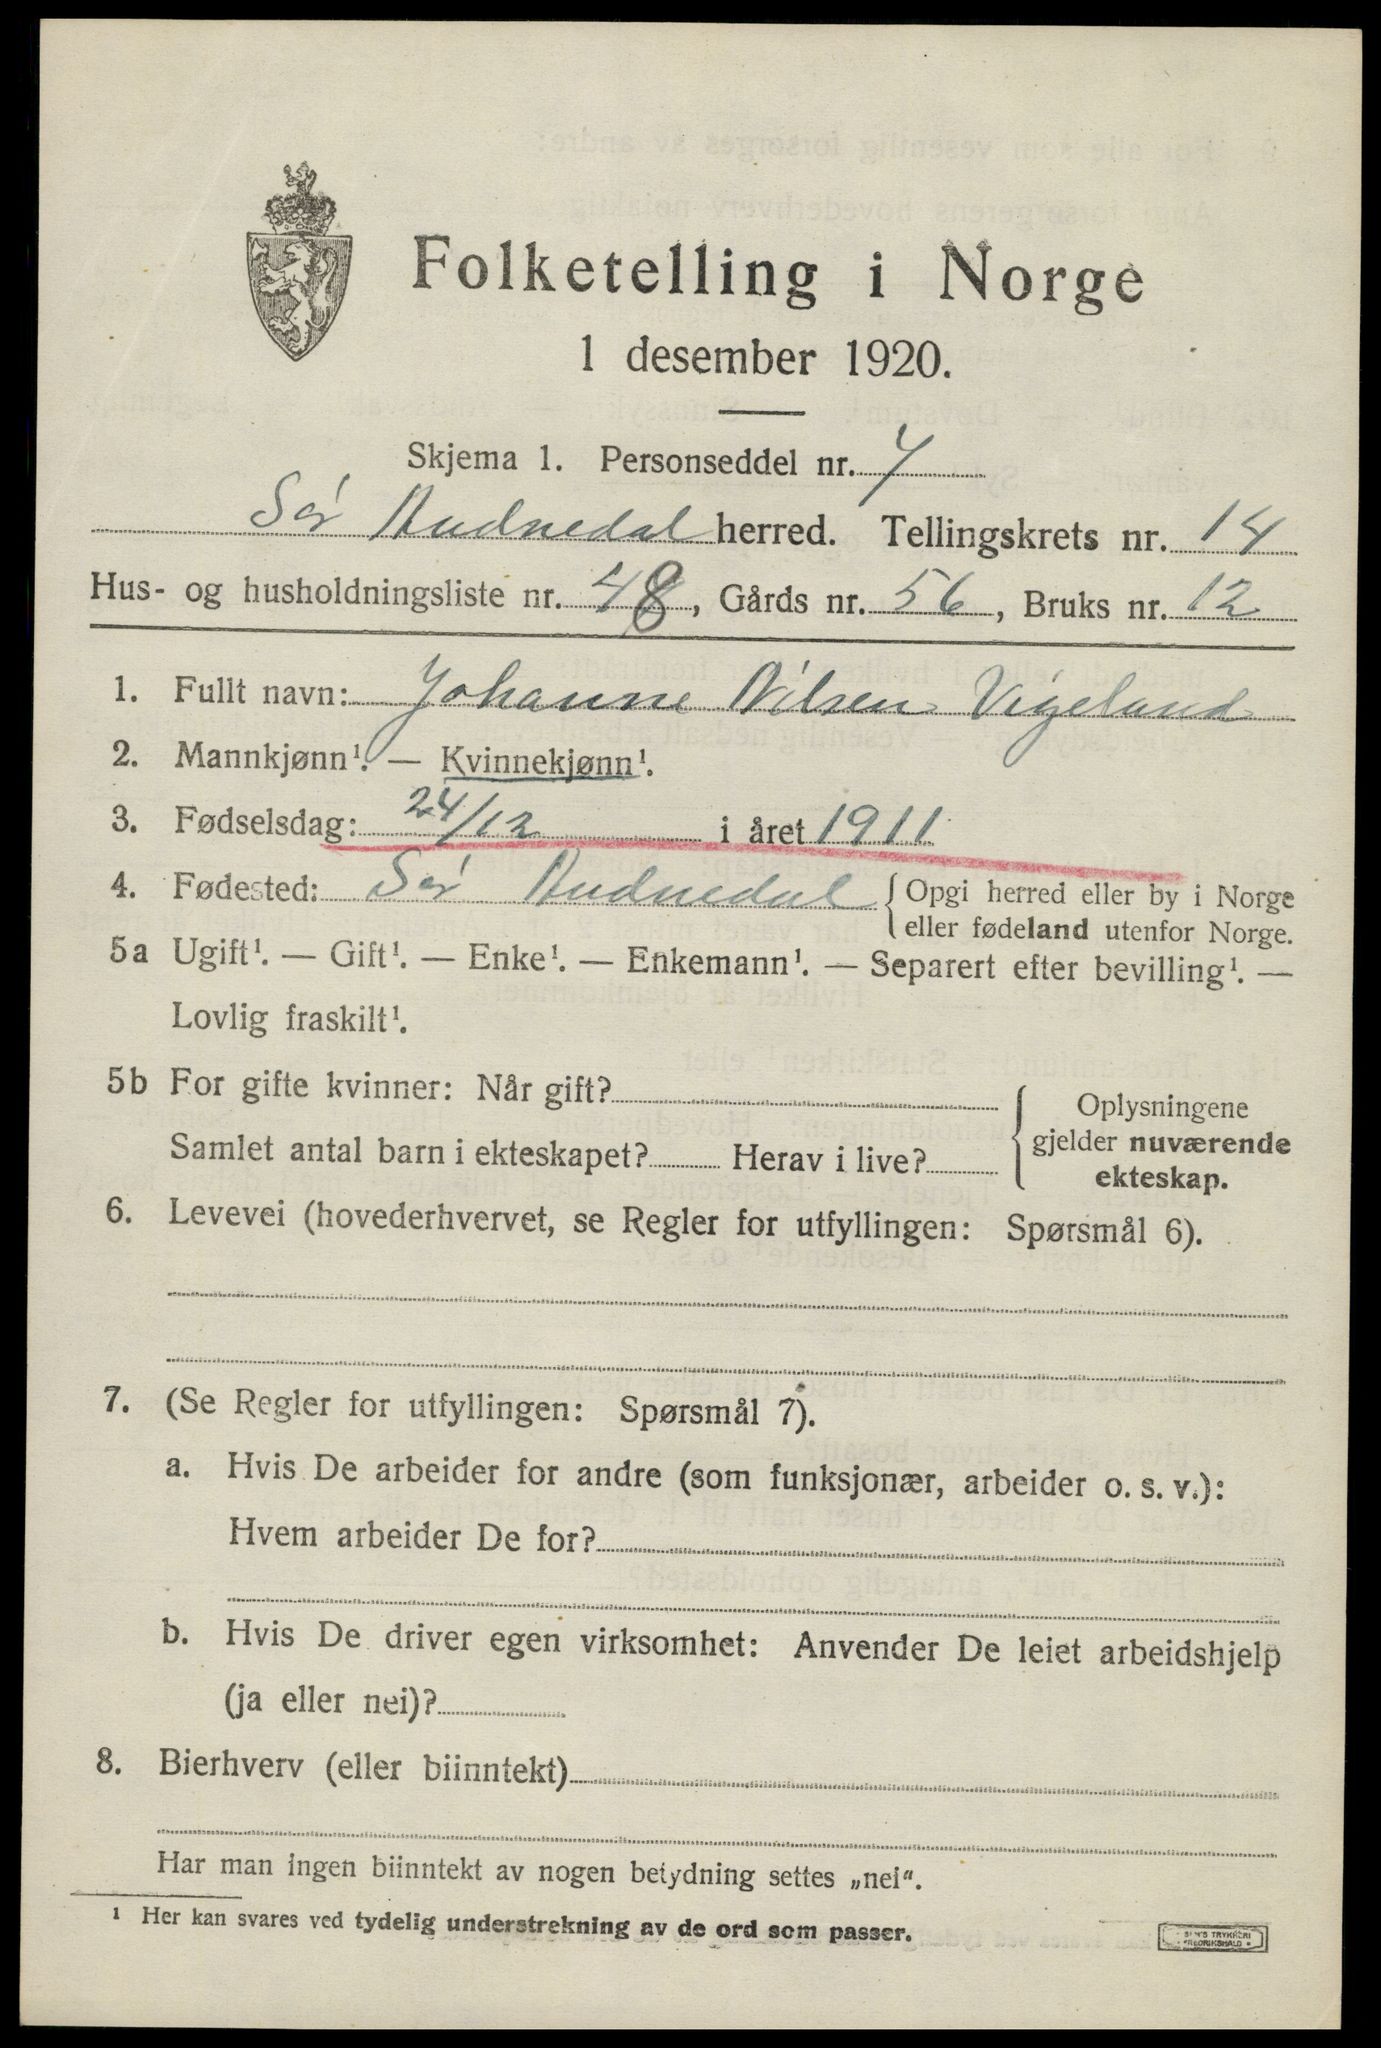 Folketelling i Norge
1 desember 1920.
Skjema 1. Personseddel nr. 7
Sør Audnedal herred. Tellingskrets nr. 14
Hus- og husholdningsliste nr. 48, Gårds nr. 56, Bruks nr. 12
1. Fullt navn: Johanne Nilsen Vigeland
2. Mannkjønn¹. — Kvinnekjønn¹.
3. Fødselsdag: 24/12 i året 1911
4. Fødested: Sør Audnedal {Opgi herred eller by i Norge
eller fødeland utenfor Norge.
5a Ugift¹. — Gift¹. — Enke¹. — Enkemann¹. — Separert efter bevilling¹. —
Lovlig fraskilt¹.
5b For gifte kvinner: Når gift?
Samlet antal barn i ekteskapet? Herav i live?
{Oplysningene
gjelder nuværende
ekteskap.
6. Levevei (hovederhvervet, se Regler for utfyllingen: Spørsmål 6).
7. (Se Regler for utfyllingen: Spørsmål 7).
a. Hvis De arbeider for andre (som funksjonær, arbeider o. s. v.):
Hvem arbeider De for?
b. Hvis De driver egen virksomhet: Anvender De leiet arbeidshjelp
(ja eller nei)?
8. Bierhverv (eller biinntekt)
Har man ingen biinntekt av nogen betydning settes „nei".
¹ Her kan svares ved tydelig understrekning av de ord som passer.
TRYKKERI